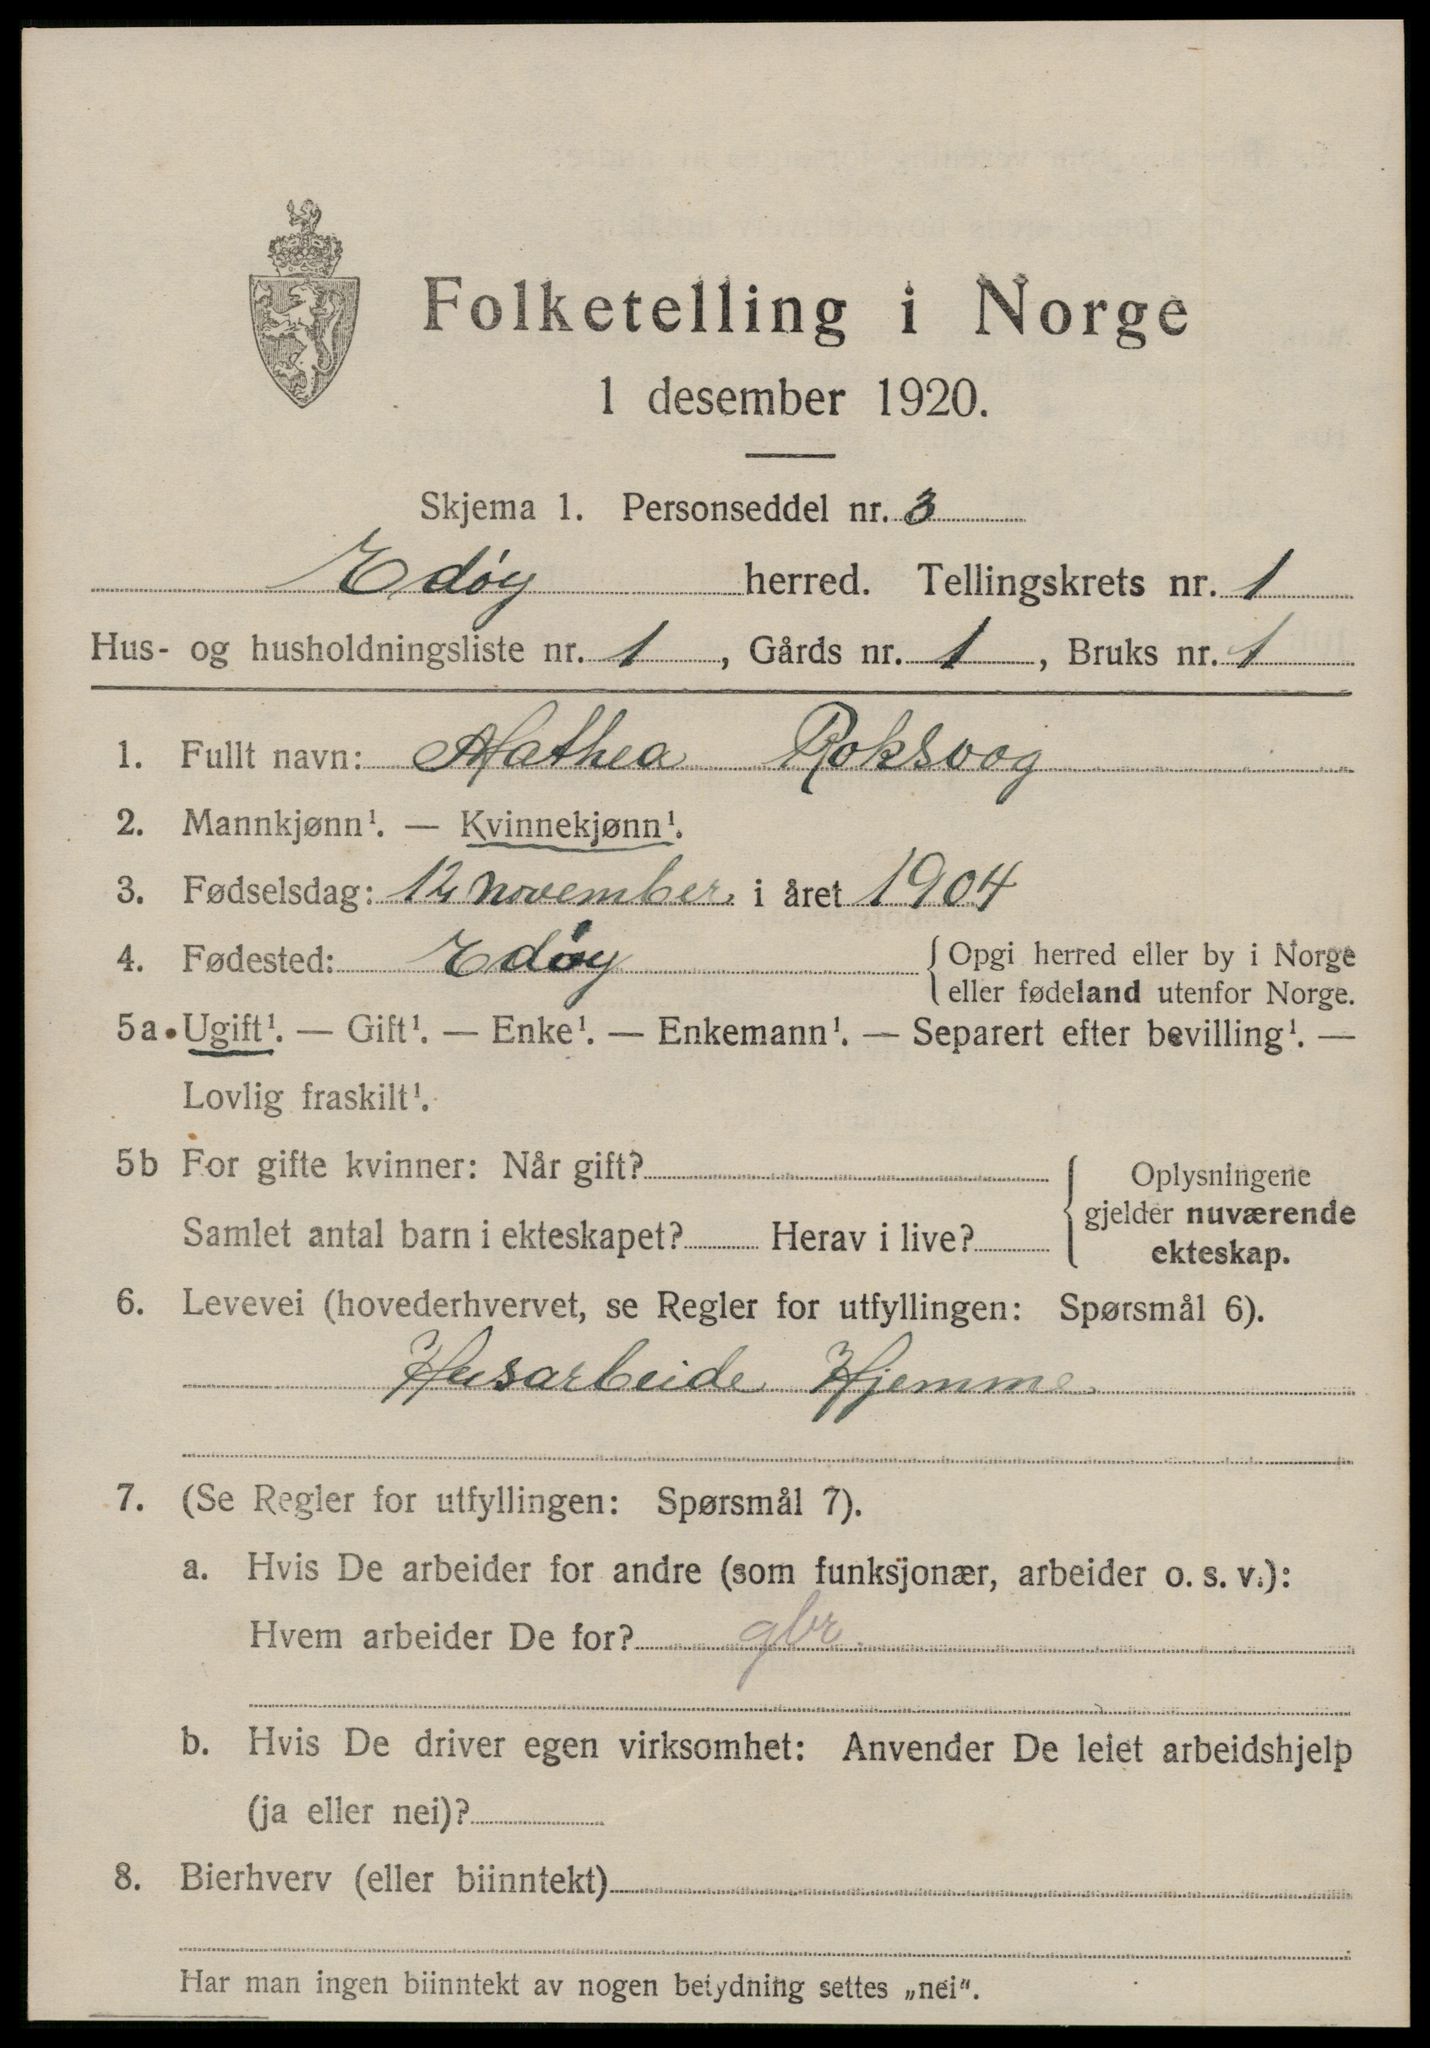 Folketelling i Norge
1 desember 1920.
Skjema 1. Personseddel nr. 3
Edøy herred. Tellingskrets nr. 1
Hus- og husholdningsliste nr. 1, Gårds nr. 1, Bruks nr. 1
1. Fullt navn: Mathea Roksvog
2. Mannkjønn¹. — Kvinnekjønn¹.
3. Fødselsdag: 12 november i året 1904
4. Fødested: Edøy { Opgi herred eller by i Norge
eller fødeland utenfor Norge.
5a. Ugift¹. — Gift¹. — Enke¹. — Enkemann¹. — Separert efter bevilling¹. —
Lovlig fraskilt¹.
5b For gifte kvinner: Når gift? { Oplysningene
gjelder nuværende
Samlet antal barn i ekteskapet? Herav i live?
ekteskap.
6. Levevei (hovederhvervet, se Regler for utfyllingen: Spørsmål 6).
Husarbeide Hjemme
7. (Se Regler for utfyllingen: Spørsmål 7).
a. Hvis De arbeider for andre (som funksjonær, arbeider o. s. v.):
Hvem arbeider De for? gbr.
b. Hvis De driver egen virksomhet: Anvender De leiet arbeidshjelp
(ja eller nei)?
8. Bierhverv (eller biinntekt)
Har man ingen biinntekt av nogen betydning settes „nei".